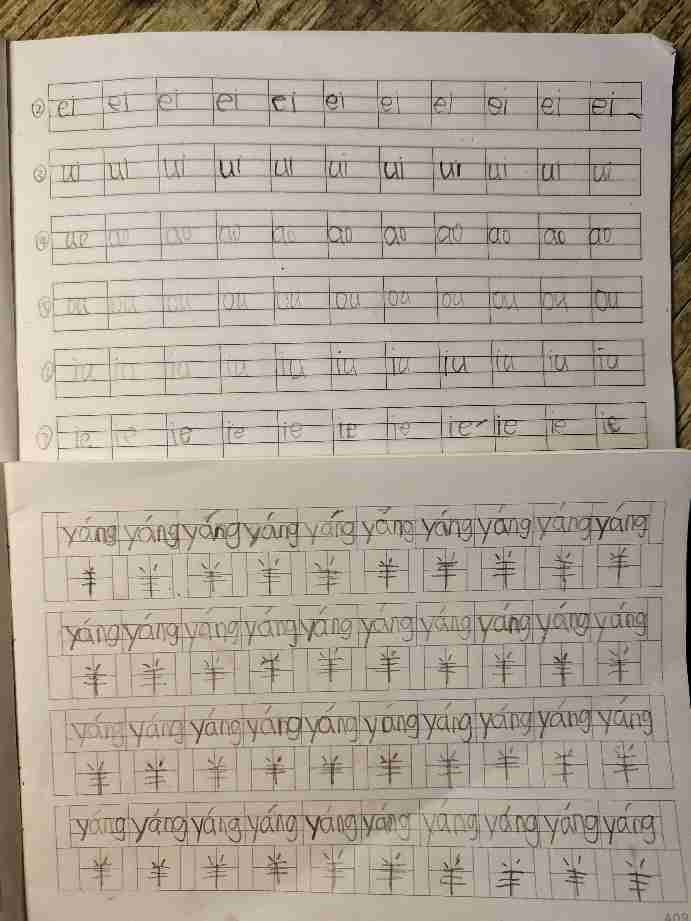 ② ei ei ei ei ei ei ei ei ei ei ei
③ ui ui ui ui ui ui ui ui ui ui ui
④ ao ao ao ao ao ao ao ao ao ao ao
⑤ ou ou ou ou ou ou ou ou ou ou ou
⑥ iu iu iu iu iu iu iu iu iu iu iu
⑦ ie ie ie ie ie ie ie ie ie ie ie
yáng yáng yáng yáng yáng yáng yáng yáng yáng yáng
羊 羊 羊 羊 羊 羊 羊 羊 羊 羊
yáng yáng yáng yáng yáng yáng yáng yáng yáng yáng
羊 羊 羊 羊 羊 羊 羊 羊 羊 羊
yáng yáng yáng yáng yáng yáng yáng yáng yáng yáng
羊 羊 羊 羊 羊 羊 羊 羊 羊 羊
yáng yáng yáng yáng yáng yáng yáng yáng yáng yáng
羊 羊 羊 羊 羊 羊 羊 羊 羊 羊